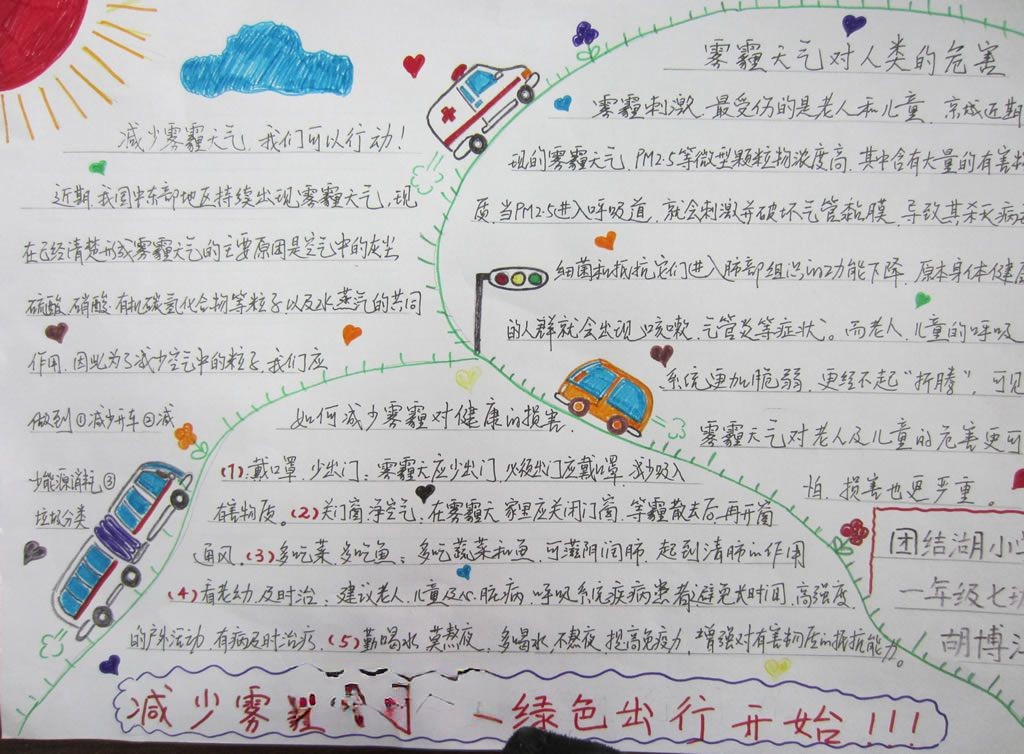 减少雾霾天气，我们可以行动！
近期，我国中东部地区持续出现雾霾天气，现
在已经清楚形成雾霾天气的主要原因是空气中的灰尘
硫酸、硝酸、有机碳氢化合物等粒子以及水蒸气的共同
作用，因此为了减少空气中的粒子，我们应
做到①减少开车②减
少能源消耗③
垃圾分类
雾霾天气对人类的危害
雾霾刺激，最受伤的是老人和儿童，京城近期
现的雾霾天气，PM2.5等微型颗粒物浓度高，其中含有大量的有害物
质，当PM2.5进入呼吸道，就会刺激并破坏气管黏膜，导致其杀灭病
细菌和抵抗它们进入肺部组织的功能下降，原本身体健康
的人群就会出现咳嗽、气管炎等症状。而老人、儿童的呼吸
系统更加脆弱，更经不起“折腾”，可见
雾霾天气对老人及儿童的危害更可
怕，损害也更严重。
如何减少雾霾对健康的损害
(1).戴口罩，少出门：雾霾天应少出门，必须出门应戴口罩，减少吸入
有害物质。(2)关门窗，净空气：在雾霾天，家里应关闭门窗，等霾散去后，再开窗
通风。(3)多吃菜，多吃鱼：多吃蔬菜和鱼，可滋阴润肺，起到清肺的作用
(4)看老幼，及时治：建议老人、儿童及心脏病、呼吸系统疾病患者避免长时间、高强度
的户外活动，有病及时治疗。(5)勤喝水，莫熬夜：多喝水，不熬夜，提高免疫力，增强对有害物质的抵抗能力。
团结湖小学
一年级七班
胡博
减少雾霾 一绿色出行开始!!!